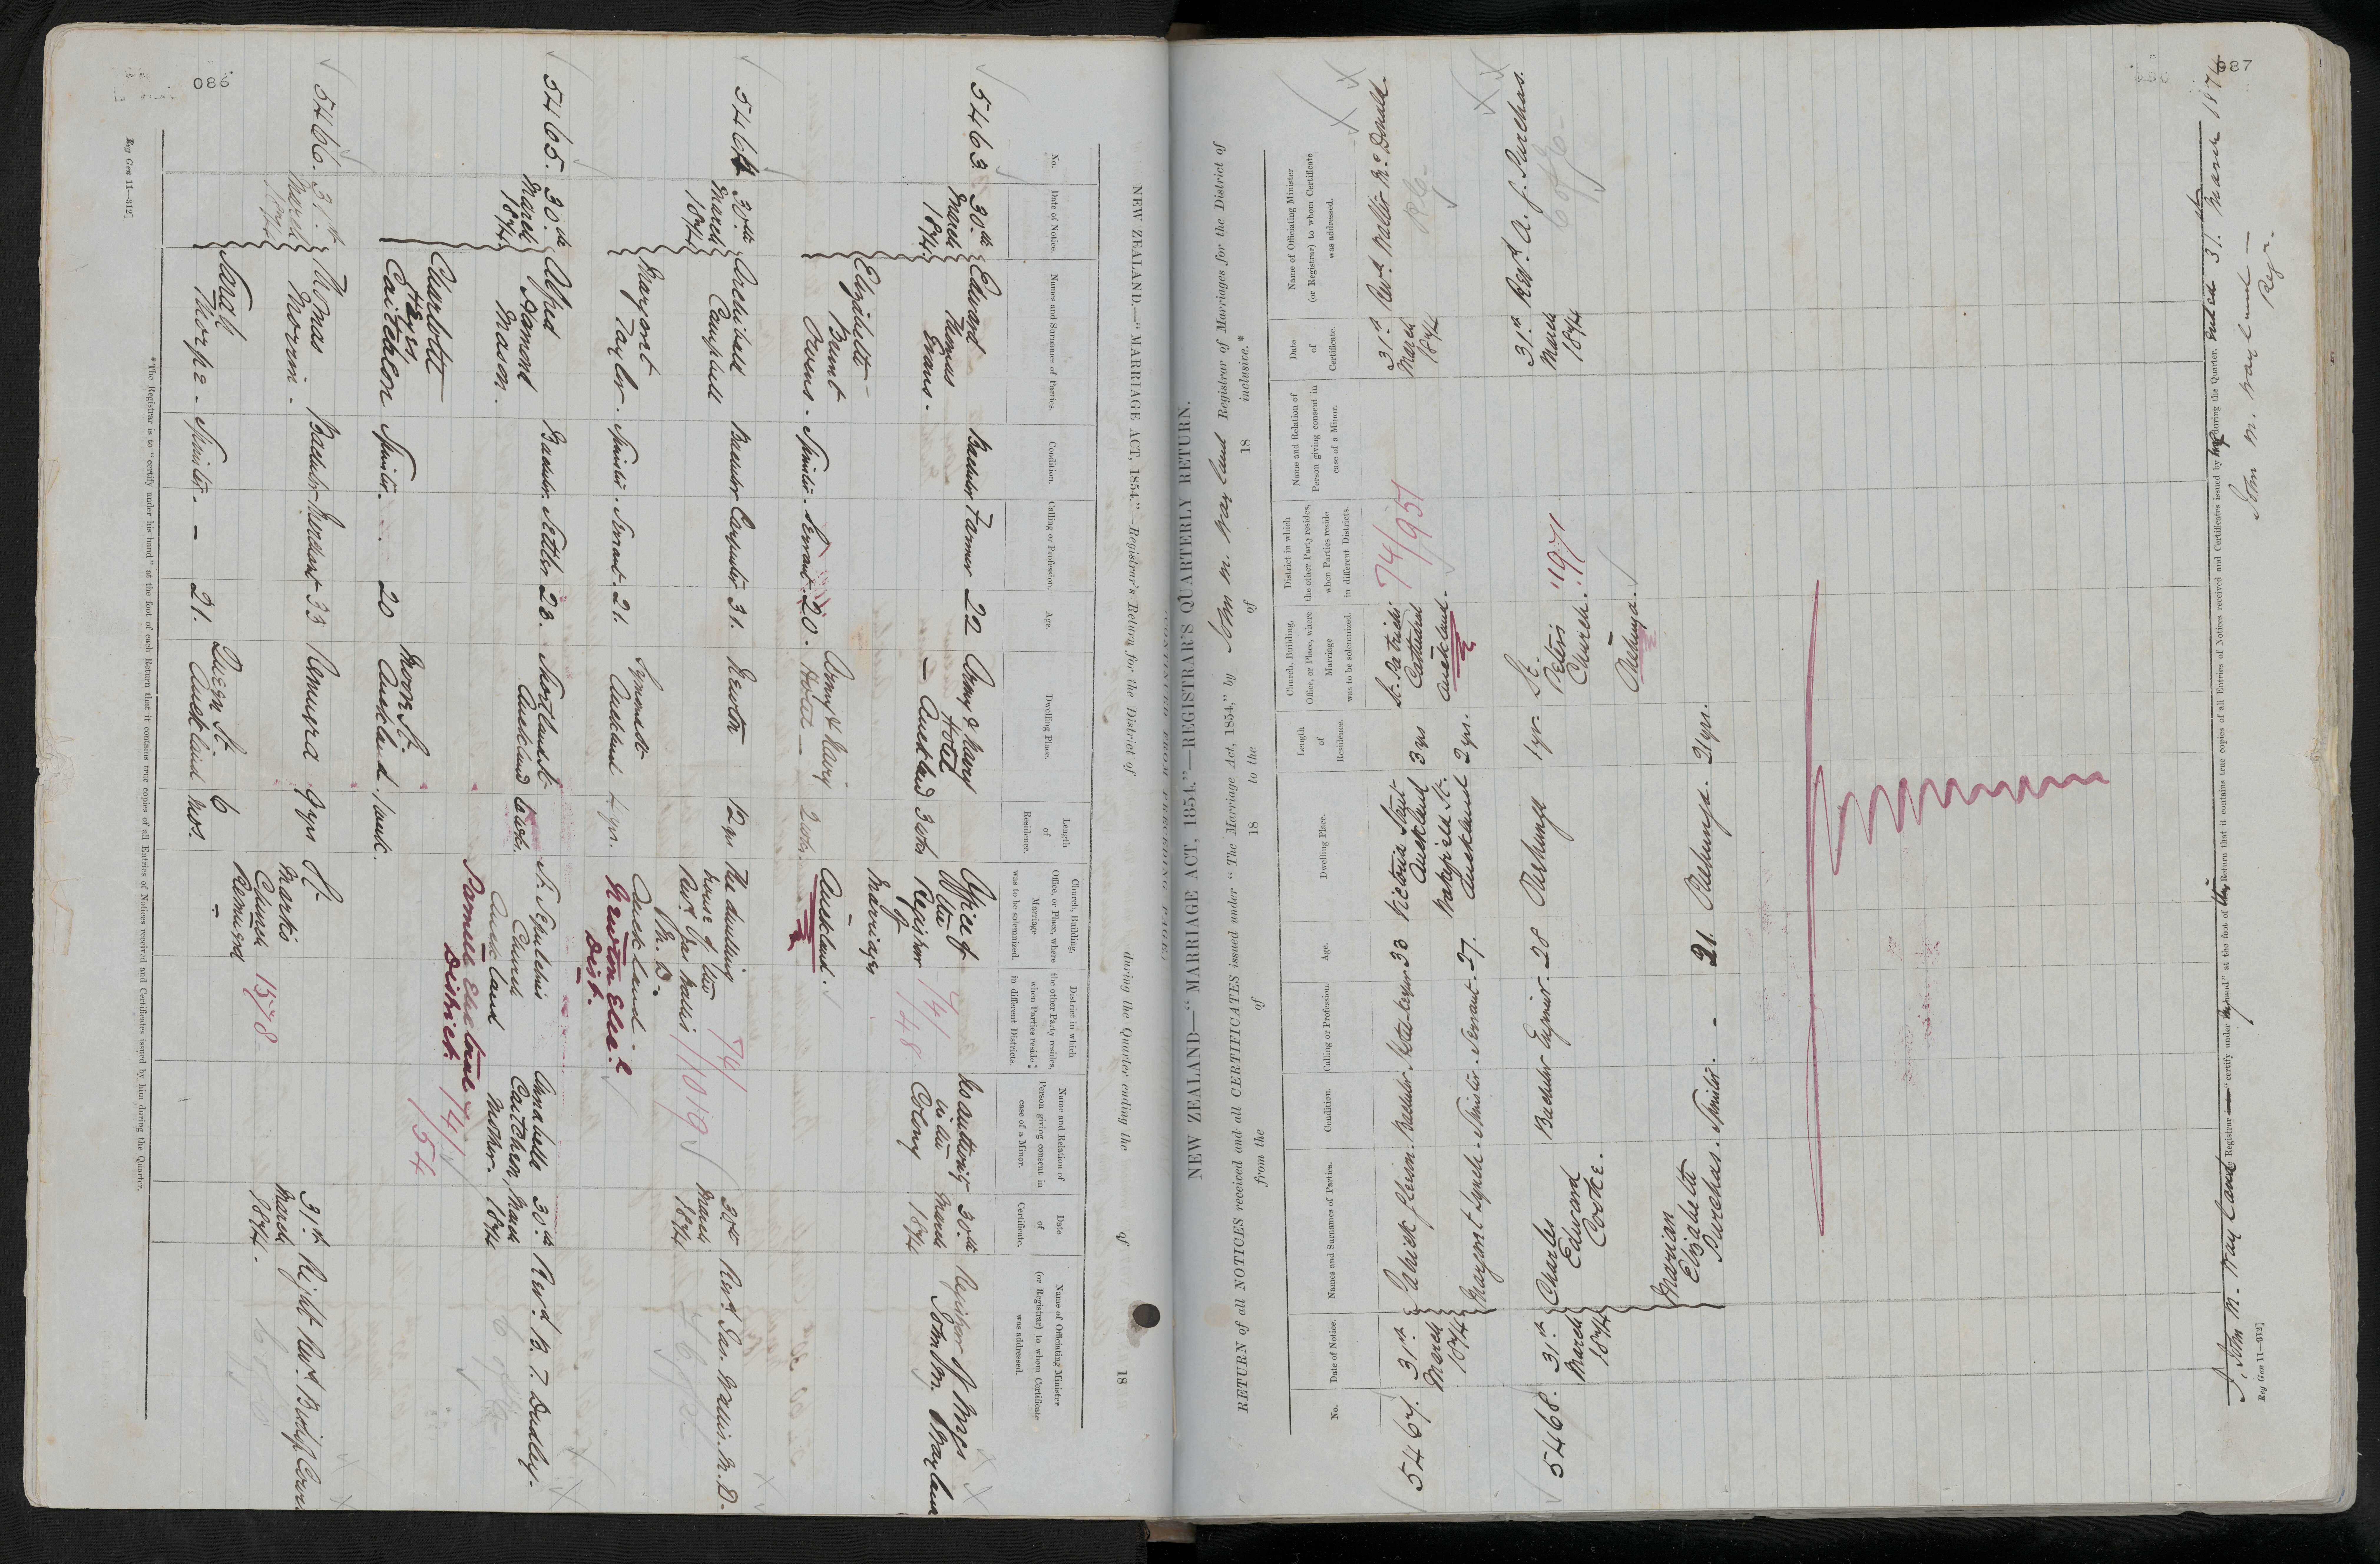 086
NEW ZEALAND.—"MARRIAGE ACT, 1854."—Registrar's Return for the District of during the Quarter ending the of 18
No.
Date of Notice.
Names and Surnames of Parties.
Condition.
Calling or Profession.
Age.
Dwelling Place.
Length of Residence.
Church, Building, Office, or Place, where Marriage was to be solemnized.
District in which the other Party resides, when Parties reside in different Districts.
Name and Relation of Person giving consent in case of a Minor.
Date of Certificate.
Name of Officiating Minister (or Registrar) to whom Certificate was addressed.
5463.
30th March 1874
Edward Thomas Evans.
Bachelor
Farmer
22
Army & Navy Hotel Auckland
3 wks
Office of the Registrar of Marriages Auckland.
74/148
No authority in the Colony
30th March 1874
Registrar of Mges John M.
Elizabeth Brunt Owens.
Spinster.
Servant.
20.
Army & Navy Hotel
2 wks.
5464
30th March 1874
Archibald Campbell
Bachelor
Carpenter
31.
Newton
12 yrs
The dwelling house of the Revd Jas Wallis Auckland
Newton Elec. Dist.
74/1019
30th March 1874
Revd Jas. Wallis. M.D.
Margaret Taylor.
Spinster.
Servant.
21.
Symonds St Auckland
4 yrs.
5465.
30th March 1874.
Alfred Hamond Mason.
Bachelor.
Settler.
28.
Shortland St Auckland
St. Sepulchre's Church Auckland
Parnell Electoral District.
74/154
Annabella Caitcheon, Mother.
30th March 1874
Revd B. T. Dudley.
Charlotte Hays Caitcheon
Spinster.
20
Moore St. Auckland.
1 week.
5466.
31st March 1874
Thomas Morrin.
Bachelor
Merchant
33
Remuera
9 yrs
St. Mark's Church Remuera
1578
31st March 1874.
Right Revd Bishop Cowie
Sarah Thorpe.
Spinster.
—
21.
Queen St. Auckland
6 mos.
*The Registrar is to "certify under his hand" at the foot of each Return that it contains true copies of all Entries of Notices received and Certificates issued by him during the Quarter.
Reg Gen 11—312]
087
NEW ZEALAND—"MARRIAGE ACT, 1854."—REGISTRAR'S QUARTERLY RETURN.
RETURN of all NOTICES received and all CERTIFICATES issued under "The Marriage Act, 1854," by John M. Wayland Registrar of Marriages for the District of
from the of 18 to the of 18 inclusive.*
No.
Date of Notice.
Names and Surnames of Parties.
Condition.
Calling or Profession.
Age.
Dwelling Place.
Length of Residence.
Church, Building, Office, or Place, where Marriage was to be solemnized.
District in which the other Party resides, when Parties reside in different Districts.
Name and Relation of Person giving consent in case of a Minor.
Date of Certificate.
Name of Officiating Minister (or Registrar) to whom Certificate was addressed.
5467.
31st March 1874
Patrick Gleeson.
Bachelor.
Hotel-keeper
33
Victoria Street Auckland
3 yrs
St. Patrick's Cathedral Auckland.
74/951
31st March 1874
Revd Walter McDonald.
R C
Margaret Lynch.
Spinster.
Servant.
27.
Wakefield St. Auckland
2 yrs.
5468.
31st March 1874
Charles Edward Cooke.
Bachelor
Engineer.
28
Onehunga
1 yr.
St. Peter's Church. Onehunga.
" 1971
31st March 1874
Revd A. G. Purchas.
C of E
Marian Elizabeth Purchas.
Spinster.
—
21.
Onehunga.
21 yrs.
I, John M. Wayland Registrar certify under my hand at the foot of this Return that it contains true copies of all Entries of Notices received and Certificates issued by me during the Quarter. ended 31. March 1874
John M. Wayland —
Regr.
Reg Gen 11—312]